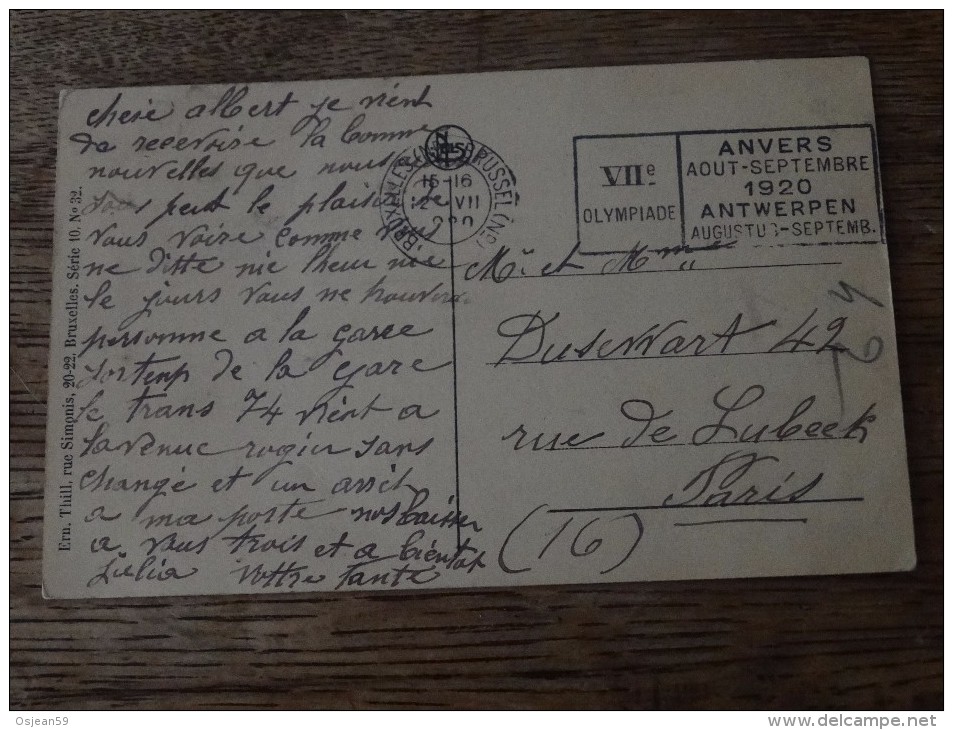 chere albert je vient
de recevoire la bonne
nouvelles que nous
vous peut le plaisir de
vous voire comme
ne ditte nie lheur nie
le jours vous ne trouverai
personne a la garre
sortemp de la gare
le trans 74 vient a
lavenue rogier sans
changé et un arret
a ma porte nos baisser
a vous trois et a bientot
Julia vottre tante
Ern. Thill, rue Simonis, 20-22, Bruxelles. Série 10. No 32.
BRUXELLES (N BRUSSEL (Nd)
15-16
12 VII
VIIe
OLYMPIADE
ANVERS
AOUT-SEPTEMBRE
1920
ANTWERPEN
AUGUSTUS-SEPTEMB.
Mr. et Mme
Dusewart 42
rue de Lubeek
Paris
(16)
Osjean59
www.delcampe.net